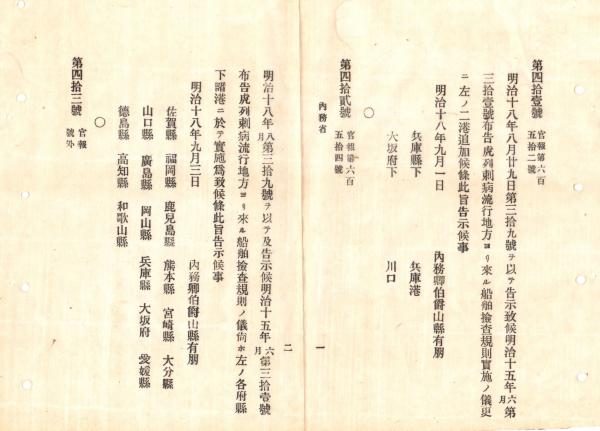 第四拾壹號 官報第六百五拾二號
明治十八年八月廿九日第三拾九號ヲ以テ告示致候明治十五年六月第
三拾壹號布告虎列剌病流行地方ヨリ來ル船舶撿査規則實施ノ儀更
ニ左ノ二港追加候條此旨告示候事
明治十八年九月一日 內務卿伯爵山縣有朋
兵庫縣下 兵庫港
大坂府下 川口
一
內務省
○
第四拾貳號 官報第六百五拾四號
明治十八年八月第三拾九號ヲ以テ及告示候明治十五年六月第三拾壹號
布告虎列剌病流行地方ヨリ來ル船舶撿査規則ノ儀尙ホ左ノ各府縣
下諸港ニ於テ實施爲致候條此旨告示候事
明治十八年九月三日 內務卿伯爵山縣有朋
二
佐賀縣 福岡縣 鹿兒島縣 熊本縣 宮崎縣 大分縣
山口縣 廣島縣 岡山縣 兵庫縣 大坂府 愛媛縣
德島縣 高知縣 和歌山縣
○
第四拾三號 官報號外